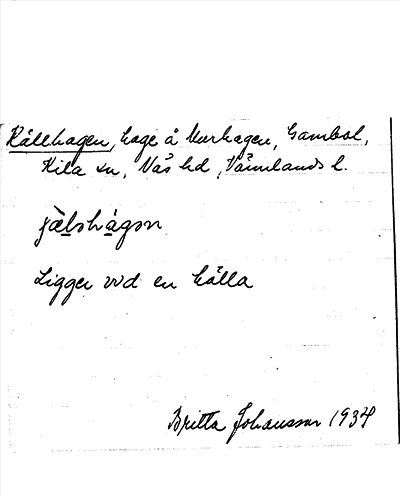 Källhagen, hage å Murhagen, Gambol,
Kila sn, Näs hd, Värmlands l.
jälshagan
Ligger vid en källa
Britta Johansson 1934